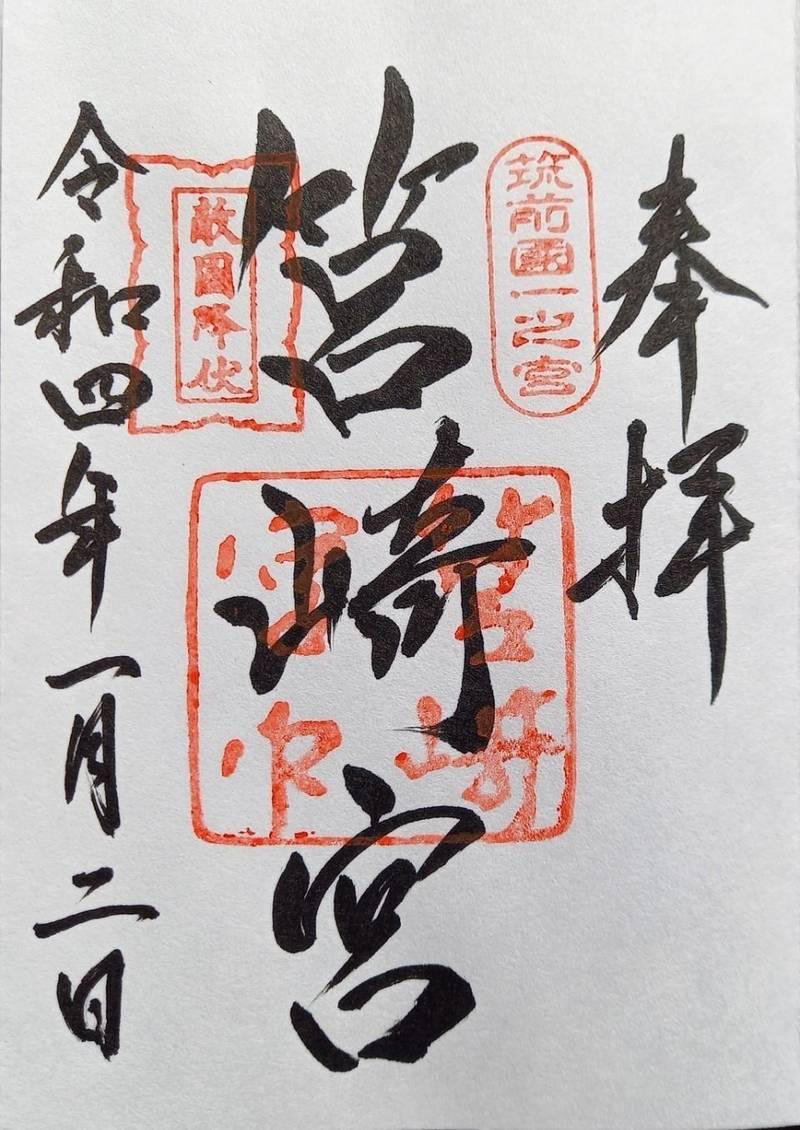 奉拝
筑前國一之宮
筥崎宮
敵國降伏
筥崎宮印
令和四年一月二日